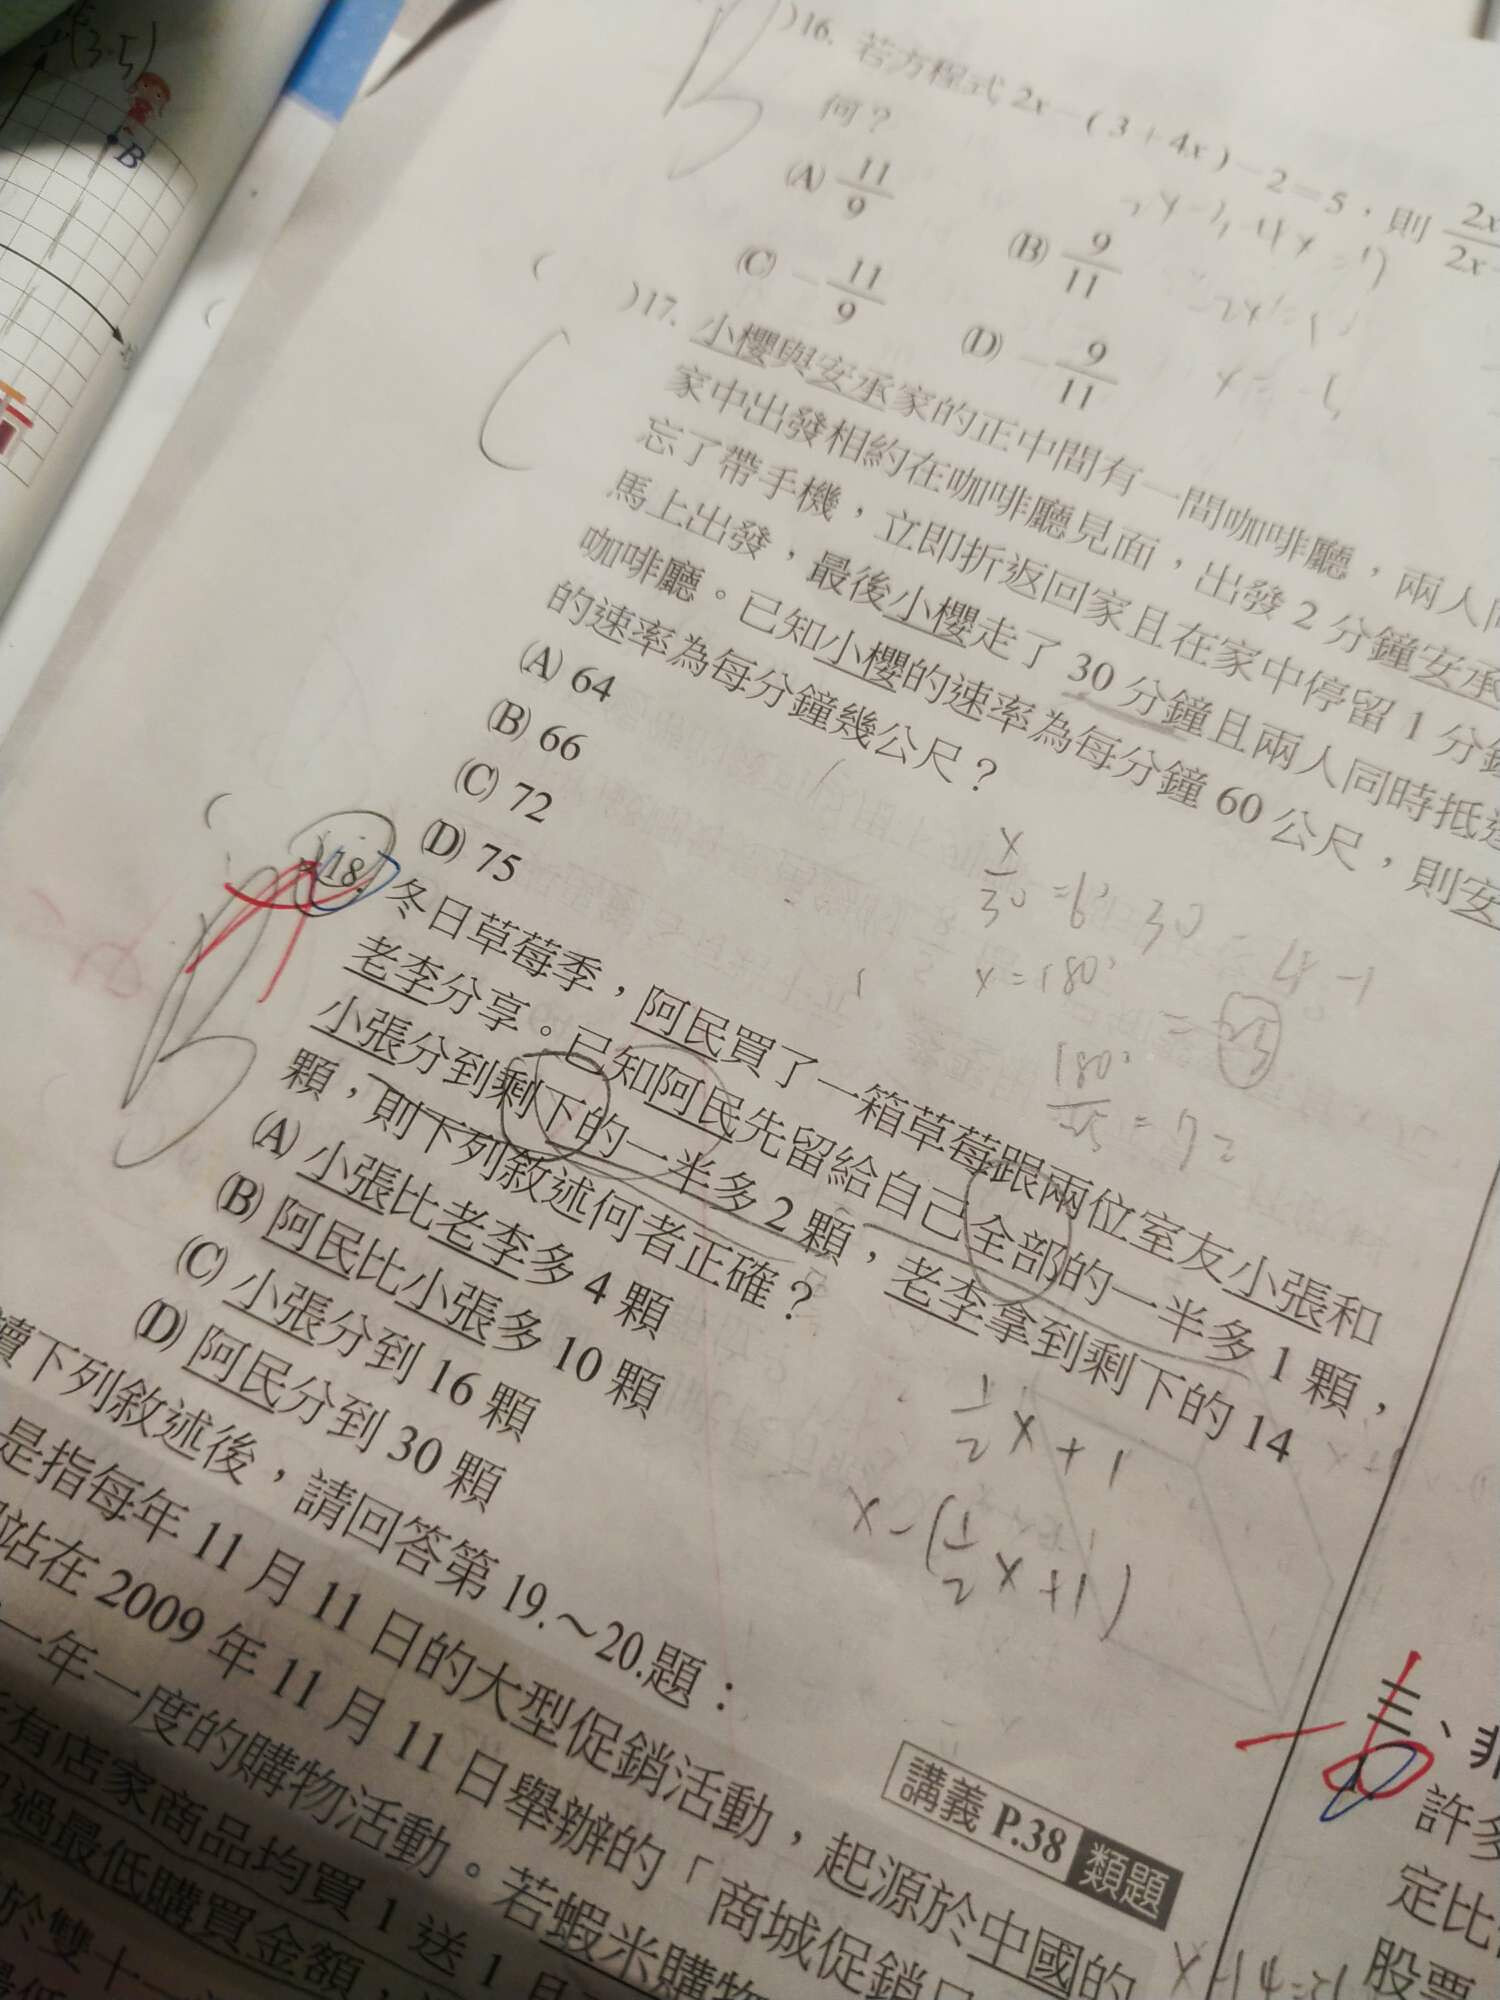 (3.5)
B
B
)16. 若方程式 2x-(3+4x)-2=5，則 2x
2x
何？
(A) 11/9
(B) 9/11
(C) -11/9
(D) -9/11
( )17. 小櫻與安承家的正中間有一間咖啡廳，兩人同
家中出發相約在咖啡廳見面，出發 2 分鐘安承
忘了帶手機，立即折返回家且在家中停留 1 分鐘
馬上出發，最後小櫻走了 30 分鐘且兩人同時抵達
咖啡廳。已知小櫻的速率為每分鐘 60 公尺，則安
的速率為每分鐘幾公尺？
(A) 64
(B) 66
(C) 72
(D) 75
C
( )18. 冬日草莓季，阿民買了一箱草莓跟兩位室友小張和
老李分享。已知阿民先留給自己全部的一半多 1 顆，
小張分到剩下的一半多 2 顆，老李拿到剩下的 14
顆，則下列敘述何者正確？
(A) 小張比老李多 4 顆
(B) 阿民比小張多 10 顆
(C) 小張分到 16 顆
(D) 阿民分到 30 顆
B
1/2 x + 1
x - (1/2 x + 1)
讀下列敘述後，請回答第 19.～20.題：
是指每年 11 月 11 日的大型促銷活動，起源於中國的
站在 2009 年 11 月 11 日舉辦的「商城促銷
一年一度的購物活動。若蝦米購物
有店家商品均買 1 送 1
過最低購買金額，
於雙十一
講義 P.38 類題
三、非
許多
定比
股票